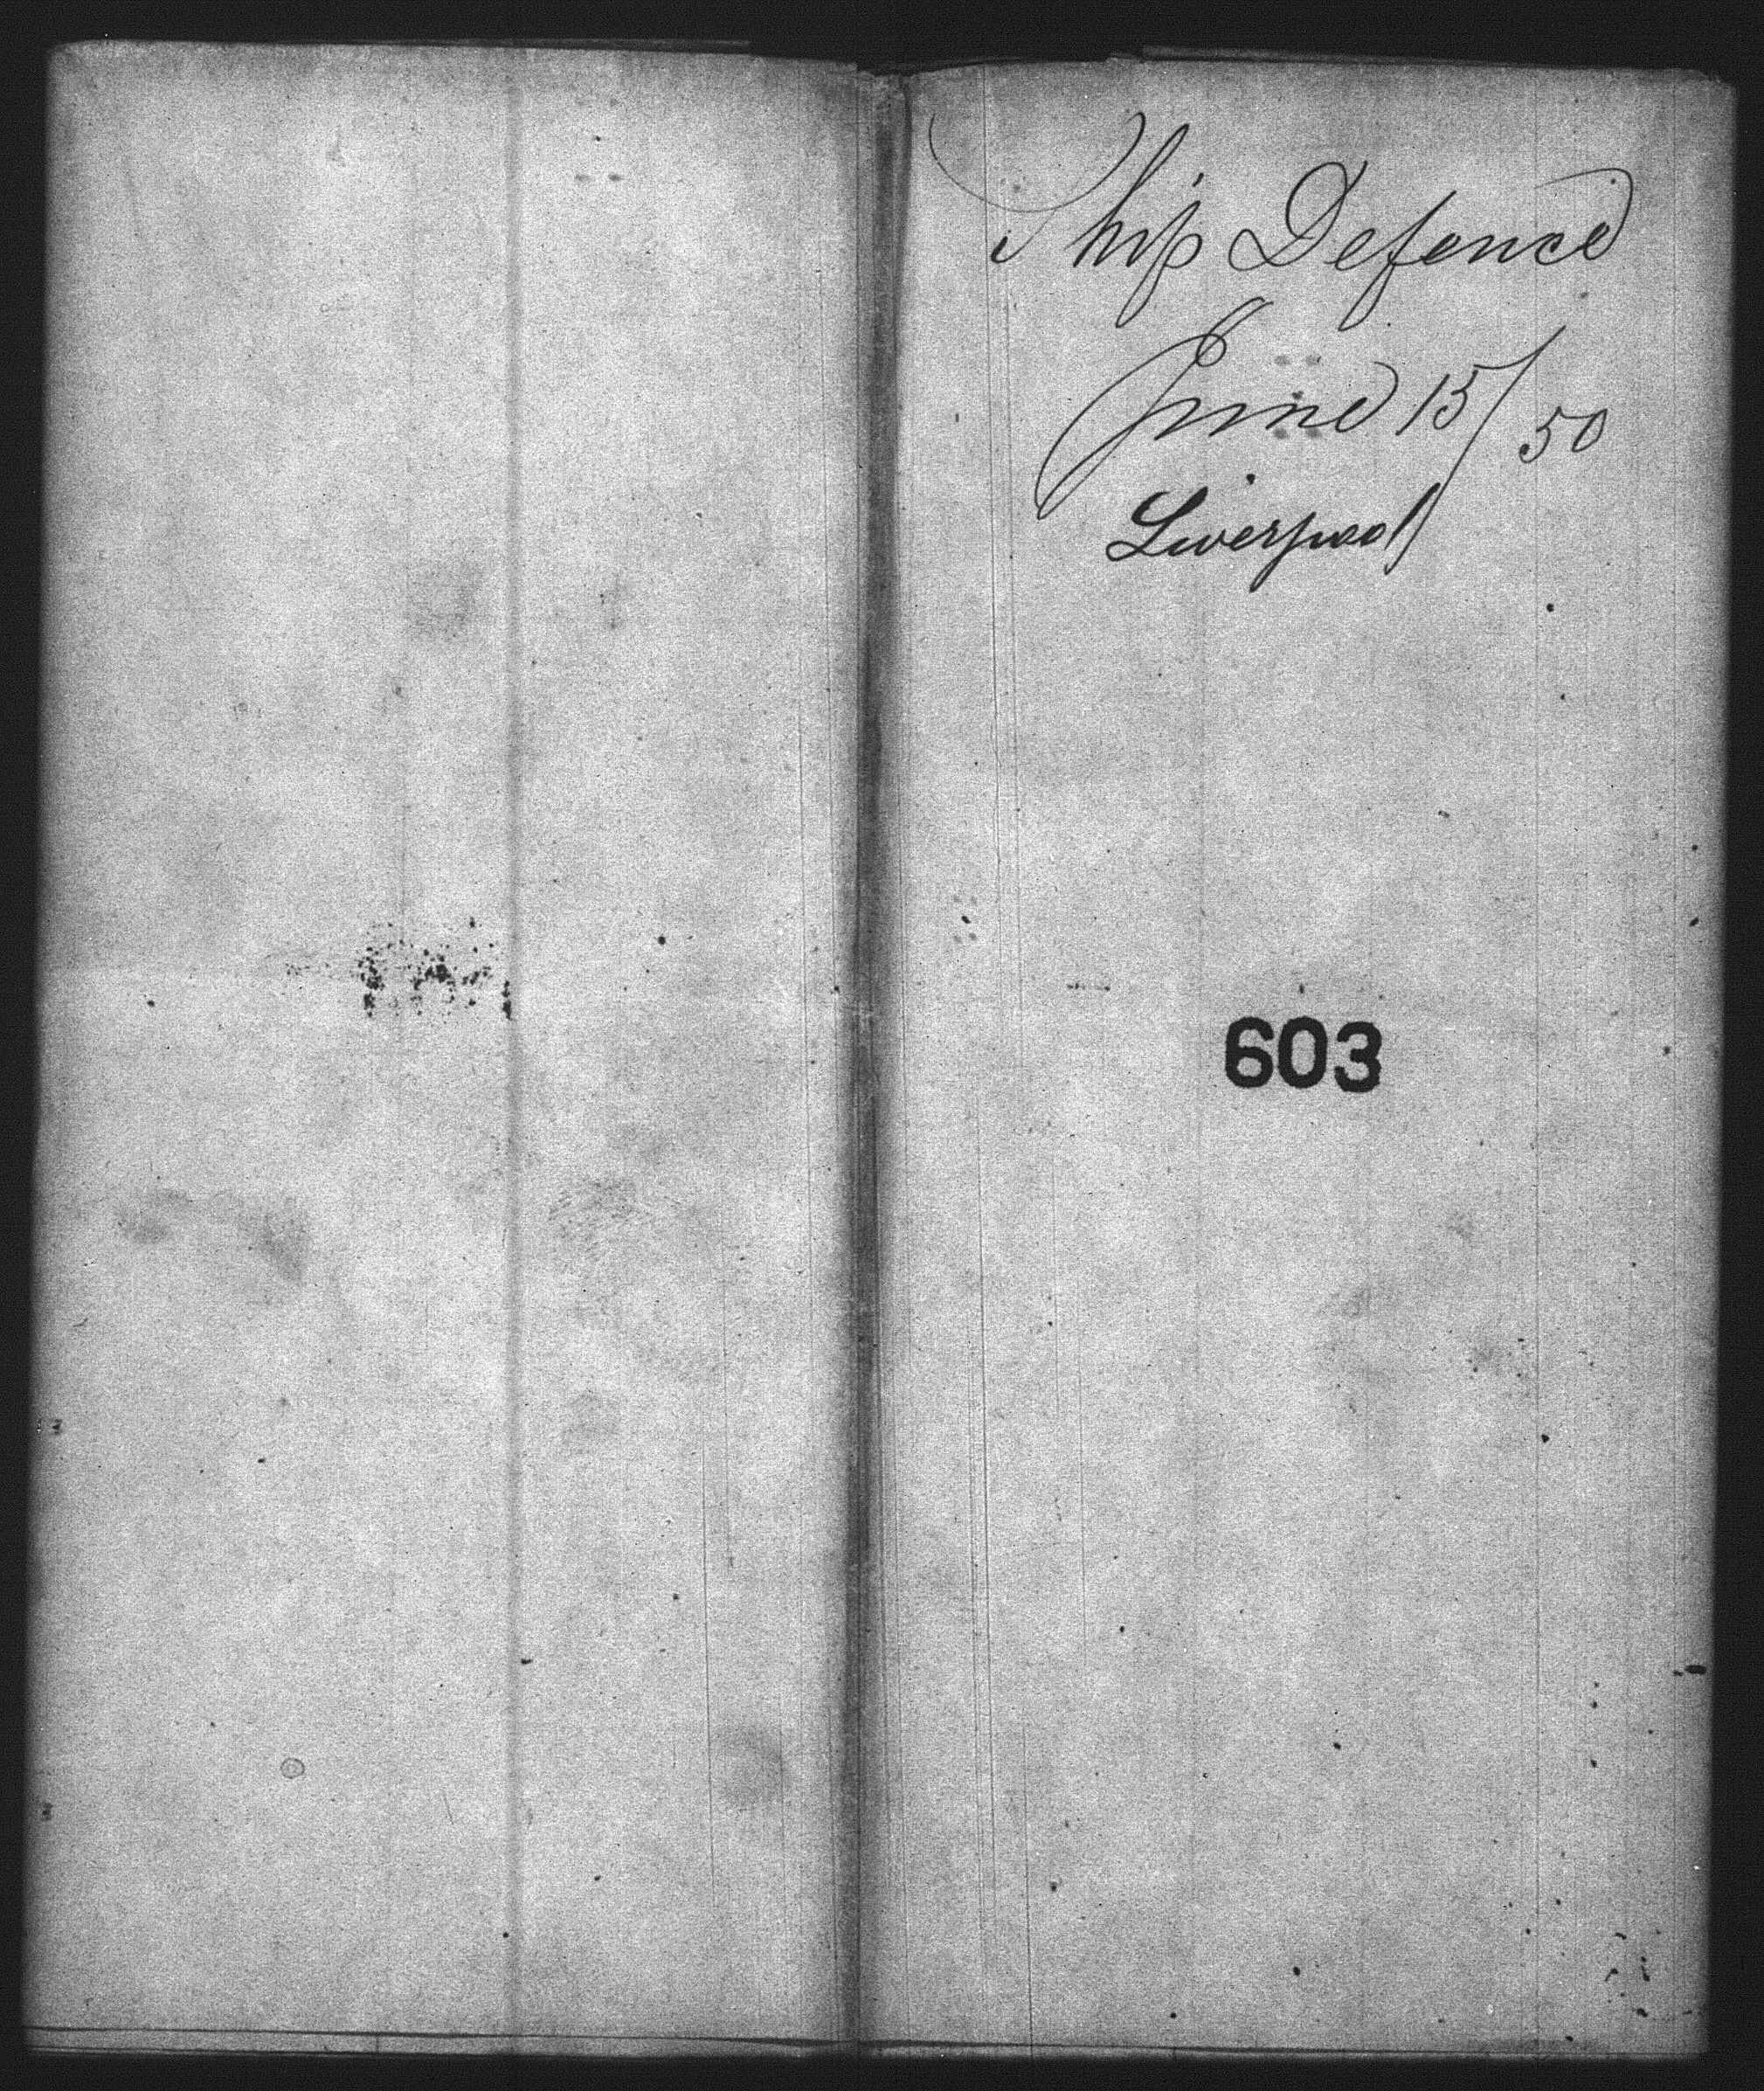 Ship Defence
June 15/50
Liverpool
603